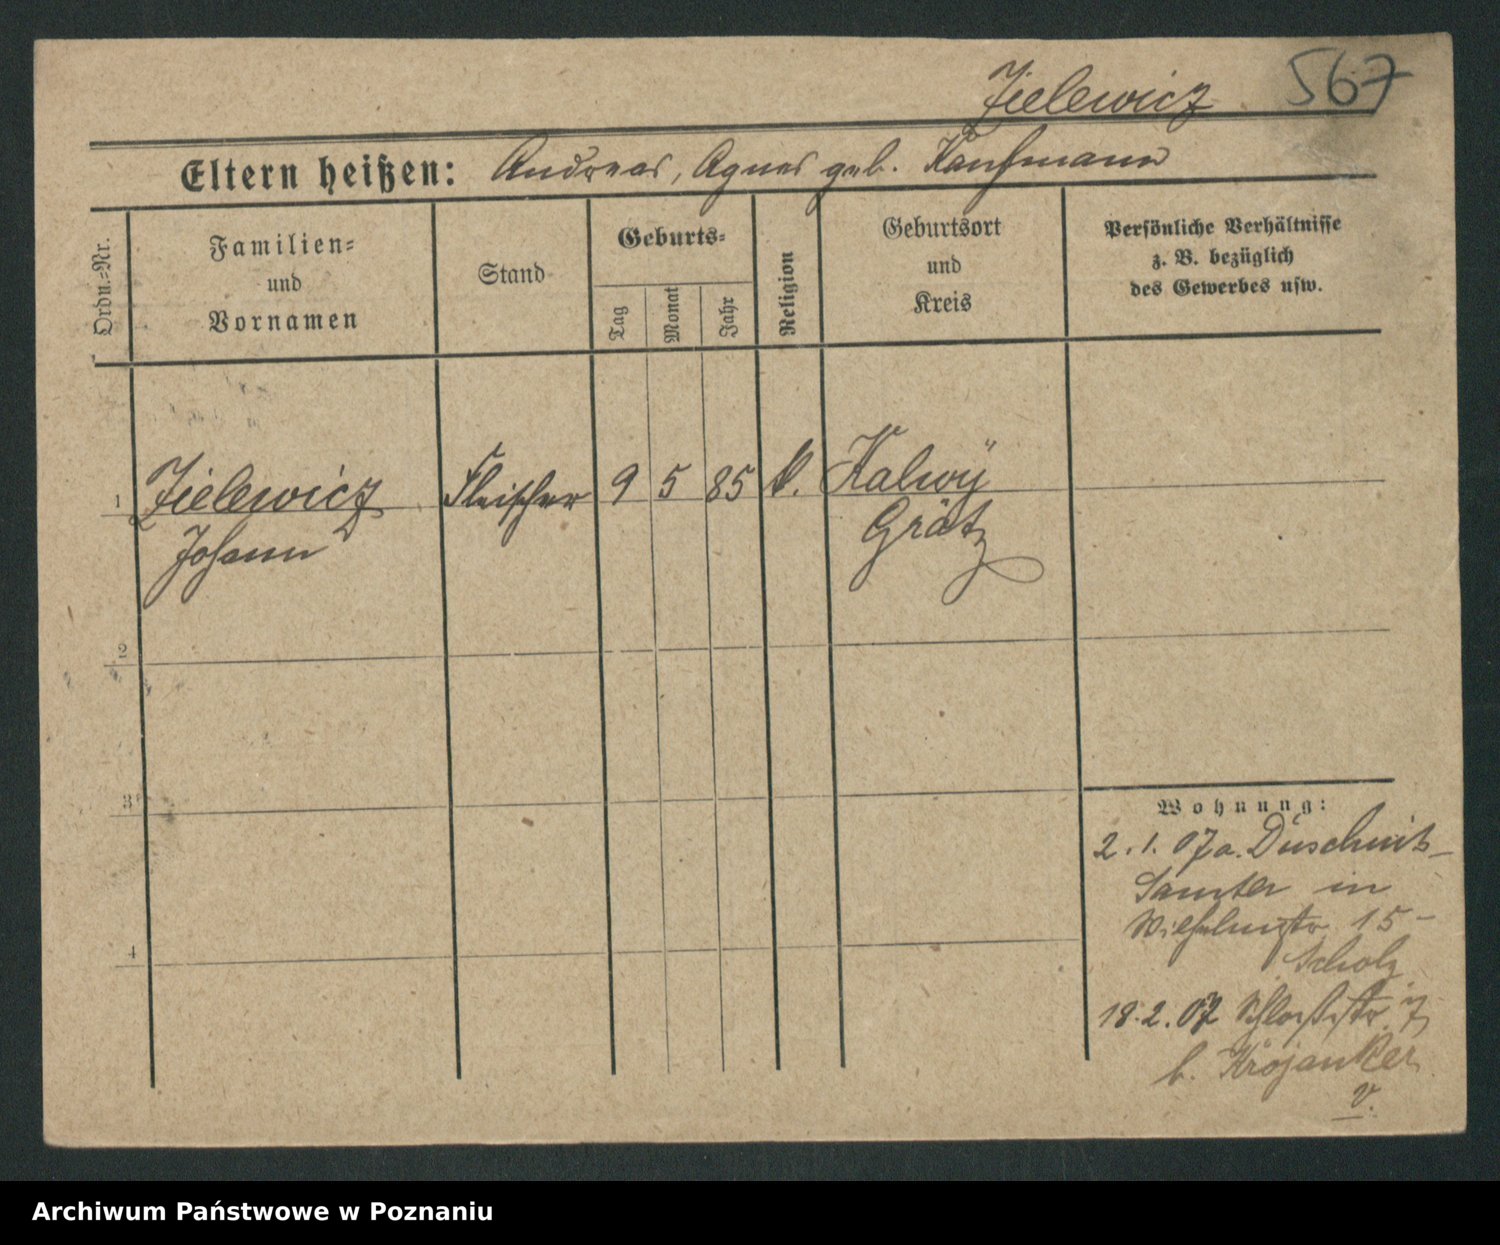 Zielewicz 567
Eltern heißen: Andreas, Agnes geb. Kaufmann
Ordn.-Nr.
Familien-
und
Vornamen
Stand
Geburts-
Tag
Monat
Jahr
Religion
Geburtsort
und
Kreis
Persönliche Verhältnisse
z. B. bezüglich
des Gewerbes usw.
1 Zielewicz Fleischer 9 5 85 k. Kalwÿ
Johann Grätz
2
3
4
Wohnung:
2.1.07 a. Duschnik-
Samter in
Wilhelmstr. 15-
Scholz
18.2.07 Schloßstr. 7
b. Krojanker
v.
Archiwum Państwowe w Poznaniu